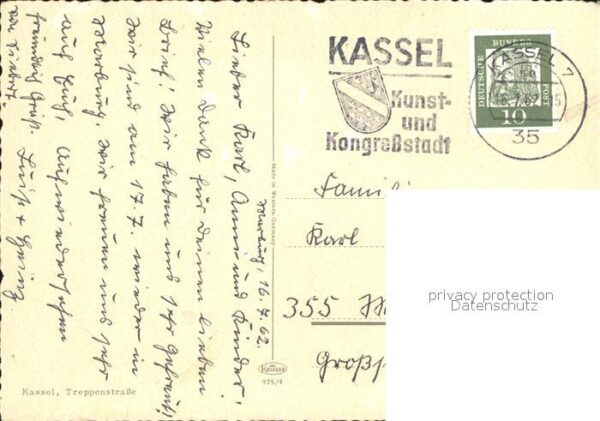 KASSEL
Kunst-
und
Kongreßstadt
DEUTSCHE BUNDESPOST
10
KASSEL 7
35
Marburg, 16.7.62.
Lieber Karl, Anni und Kinder!
Vielen Dank für Deinen lieben
Brief! Wir haben uns sehr gefreut,
wir sind am 17.7. wieder in
Marburg. Wir freuen uns sehr
auf Euch. Auf Wiedersehen
Made in Western Germany
KRÜGER
975/4
Kassel, Treppenstraße
Famili
Karl
355 M
Großs
privacy protection
Datenschutz